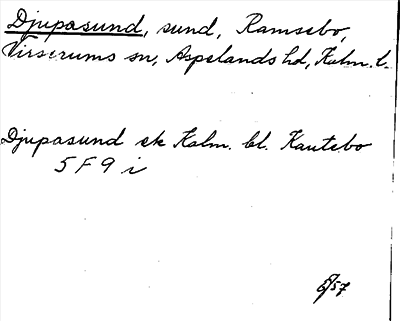 Djupasund, sund, Ramsebo,
Virserums sn, Aspelands hd, Kalm. l.
Djupasund ek Kalm. bl. Kantebo
5 F 9 i
/57